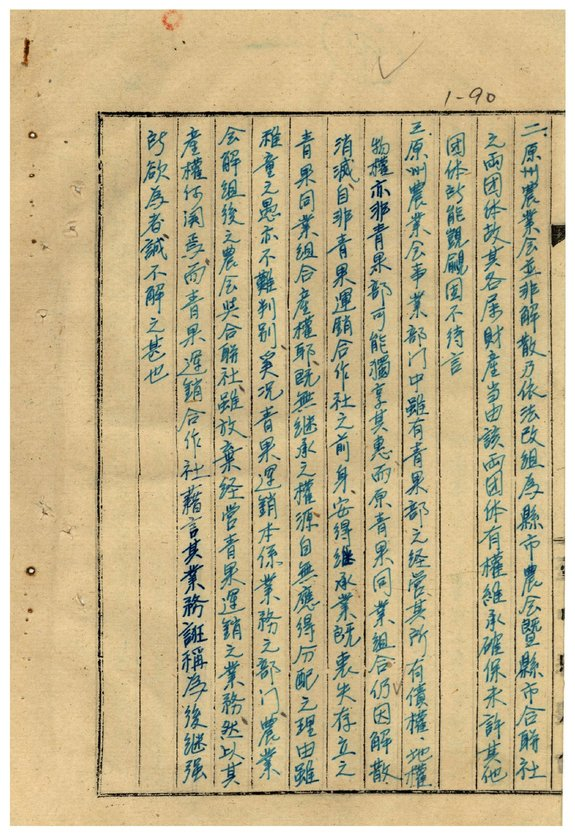 1-90
二、原州農業会並非解散乃依法改組為縣市農会暨縣市合聯社
之両団体故其各属財産当由該両団体有權継承確保未許其他
団体所能覬覦固不待言
三、原州農業会事業部门中雖有青果部之経营其所有債權、地權
物權亦非青果部可能獨享其惠而原青果同業組合仍因解散
消滅自非青果運銷合作社之前身安得継承業既喪失存立之
青果同業組合産權耶既無継承之權源自無應得分配之理由雖
稚童之愚亦不難判别、实况青果運銷本係業務之部门農業
会解組後之農会與合聯社雖放棄経营青果運銷之業務然以其
産權何関焉而青果運銷合作社藉言其業務誑稱為後継强
所欲為者誠不解之甚也